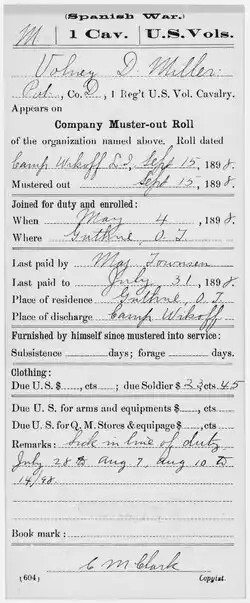 (Spanish War.)
M | 1 Cav. | U.S. Vols.
Volney D. Miller
Pvt., Co. D, 1 Reg't U.S. Vol. Cavalry.
Appears on
Company Muster-out Roll
of the organization named above. Roll dated
Camp Wikoff L.I., Sept 15, 1898.
Mustered out Sept 15, 1898.
Joined for duty and enrolled:
When May 4, 1898.
Where Guthrie, O.T.
Last paid by Maj Townsen
Last paid to July 31, 1898.
Place of residence Guthrie, O.T.
Place of discharge Camp Wikoff
Furnished by himself since mustered into service:
Subsistence ...... days; forage ...... days.
Clothing:
Due U.S. $......, cts...... ; due Soldier $23 cts 45
Due U.S. for arms and equipments $......, cts......
Due U.S. for Q.M. Stores & equipage $......, cts......
Remarks: Sick in line of duty
July 28 to Aug 7, Aug 10 to
14/98.
Book mark:
C M Clark
(604) Copyist.